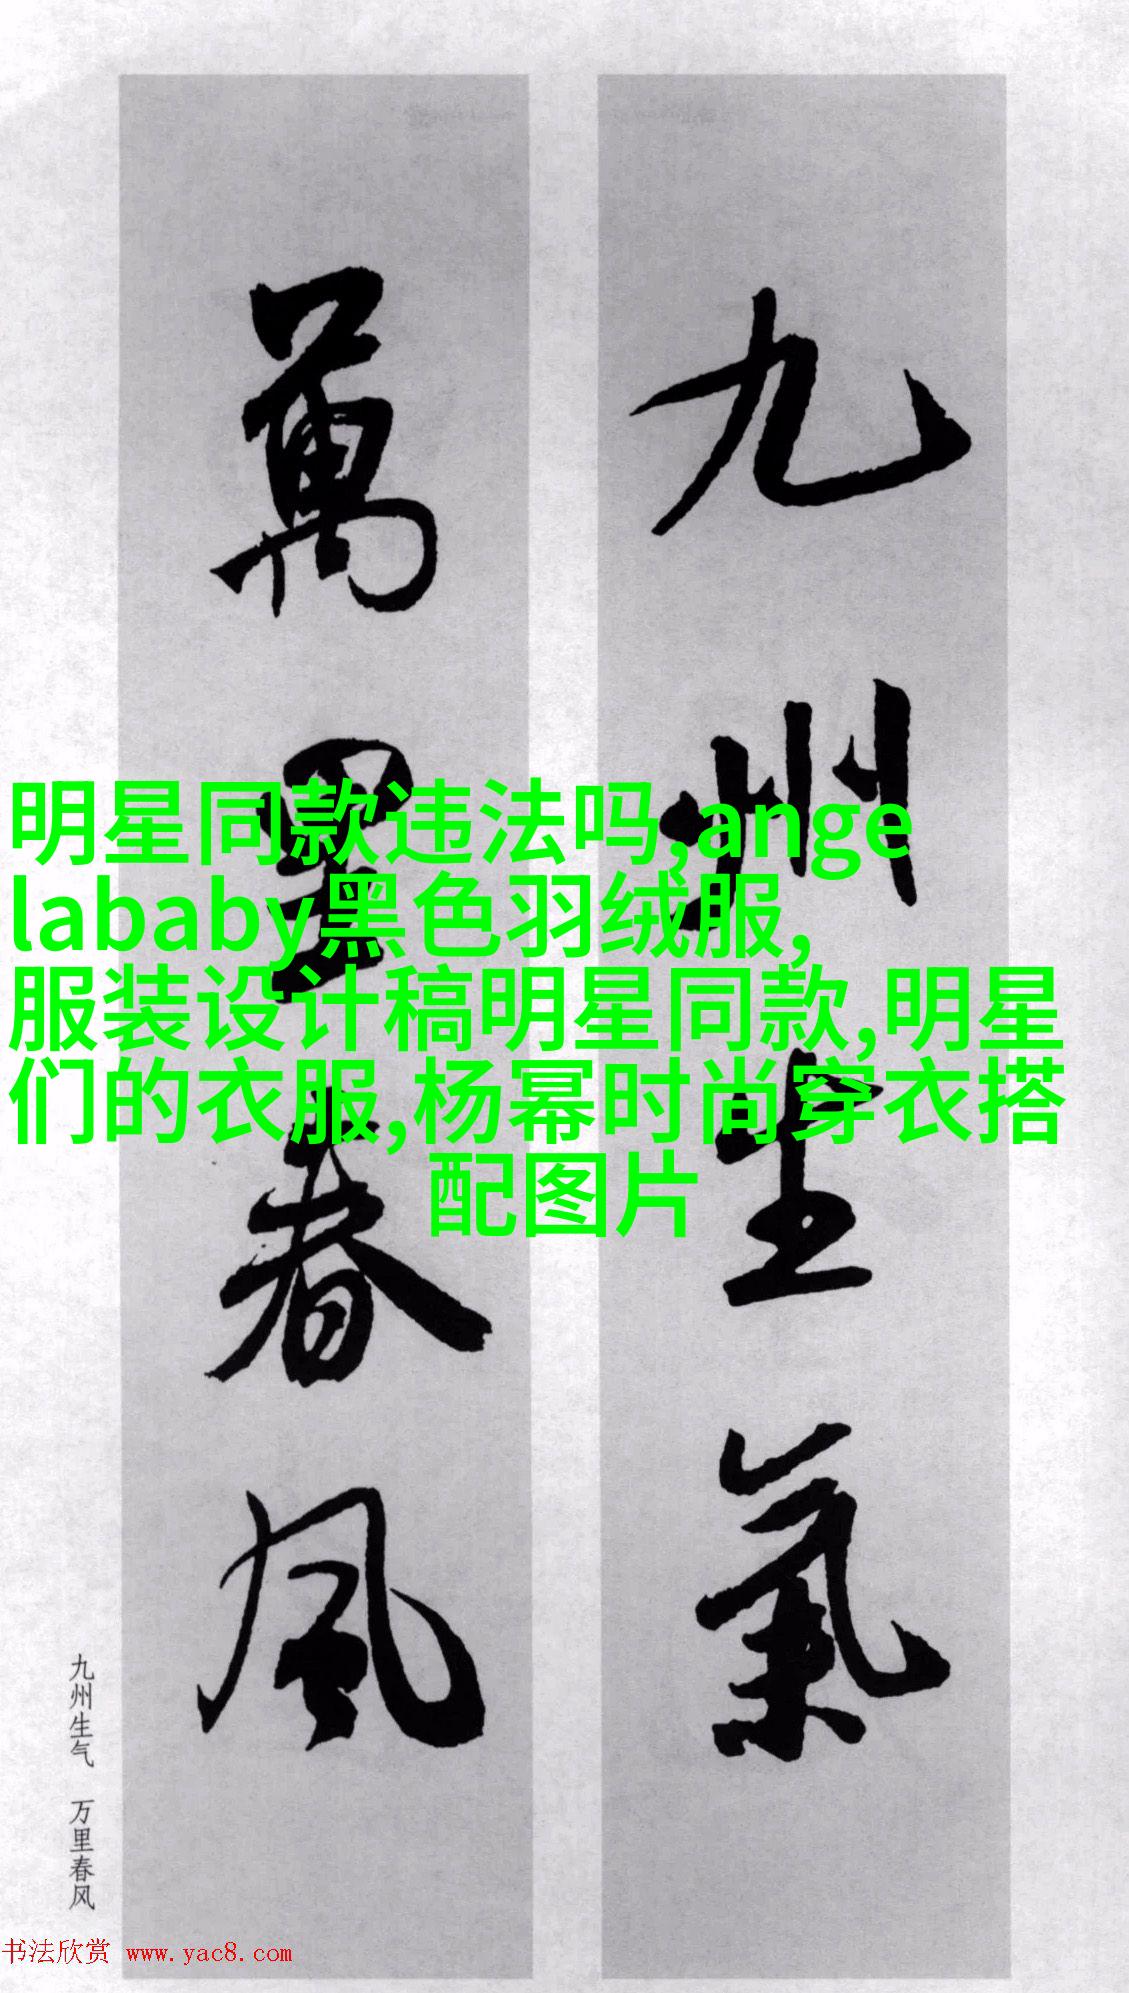 九州生氣
萬里春風
明星同款违法吗,ange
lababy黑色羽绒服,
服装设计稿明星同款,明星
们的衣服,杨幂时尚穿衣搭
配图片
九州生气 万里春风
书法欣赏 www.yac8.com